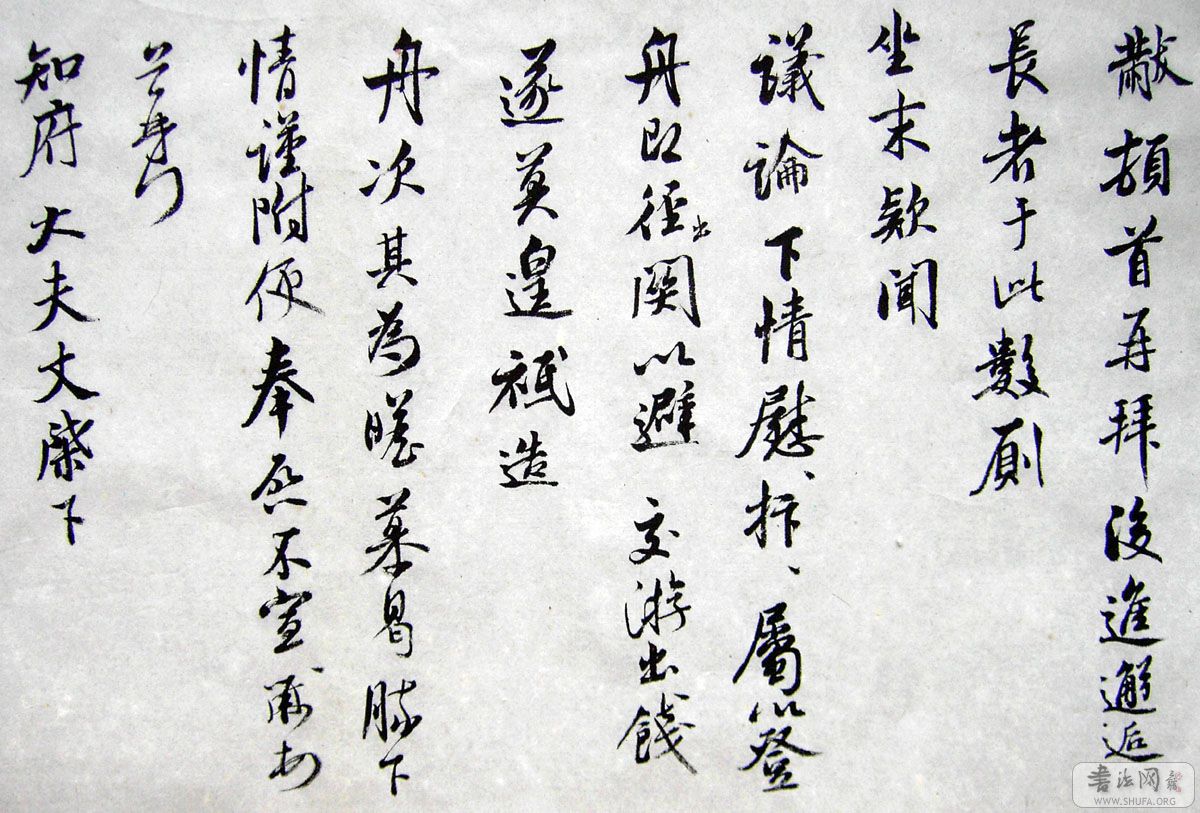 黻頓首再拜後進邂逅
長者于此數厠
坐末欵聞
議論下情慰、抃、屬以登
舟即徑出關以避交游出餞
遂莫遑祗造
舟次其為瞻慕曷勝下
情謹附便奉啓不宣黻
知府大夫丈棨下
書法网
WWW.SHUFA.ORG